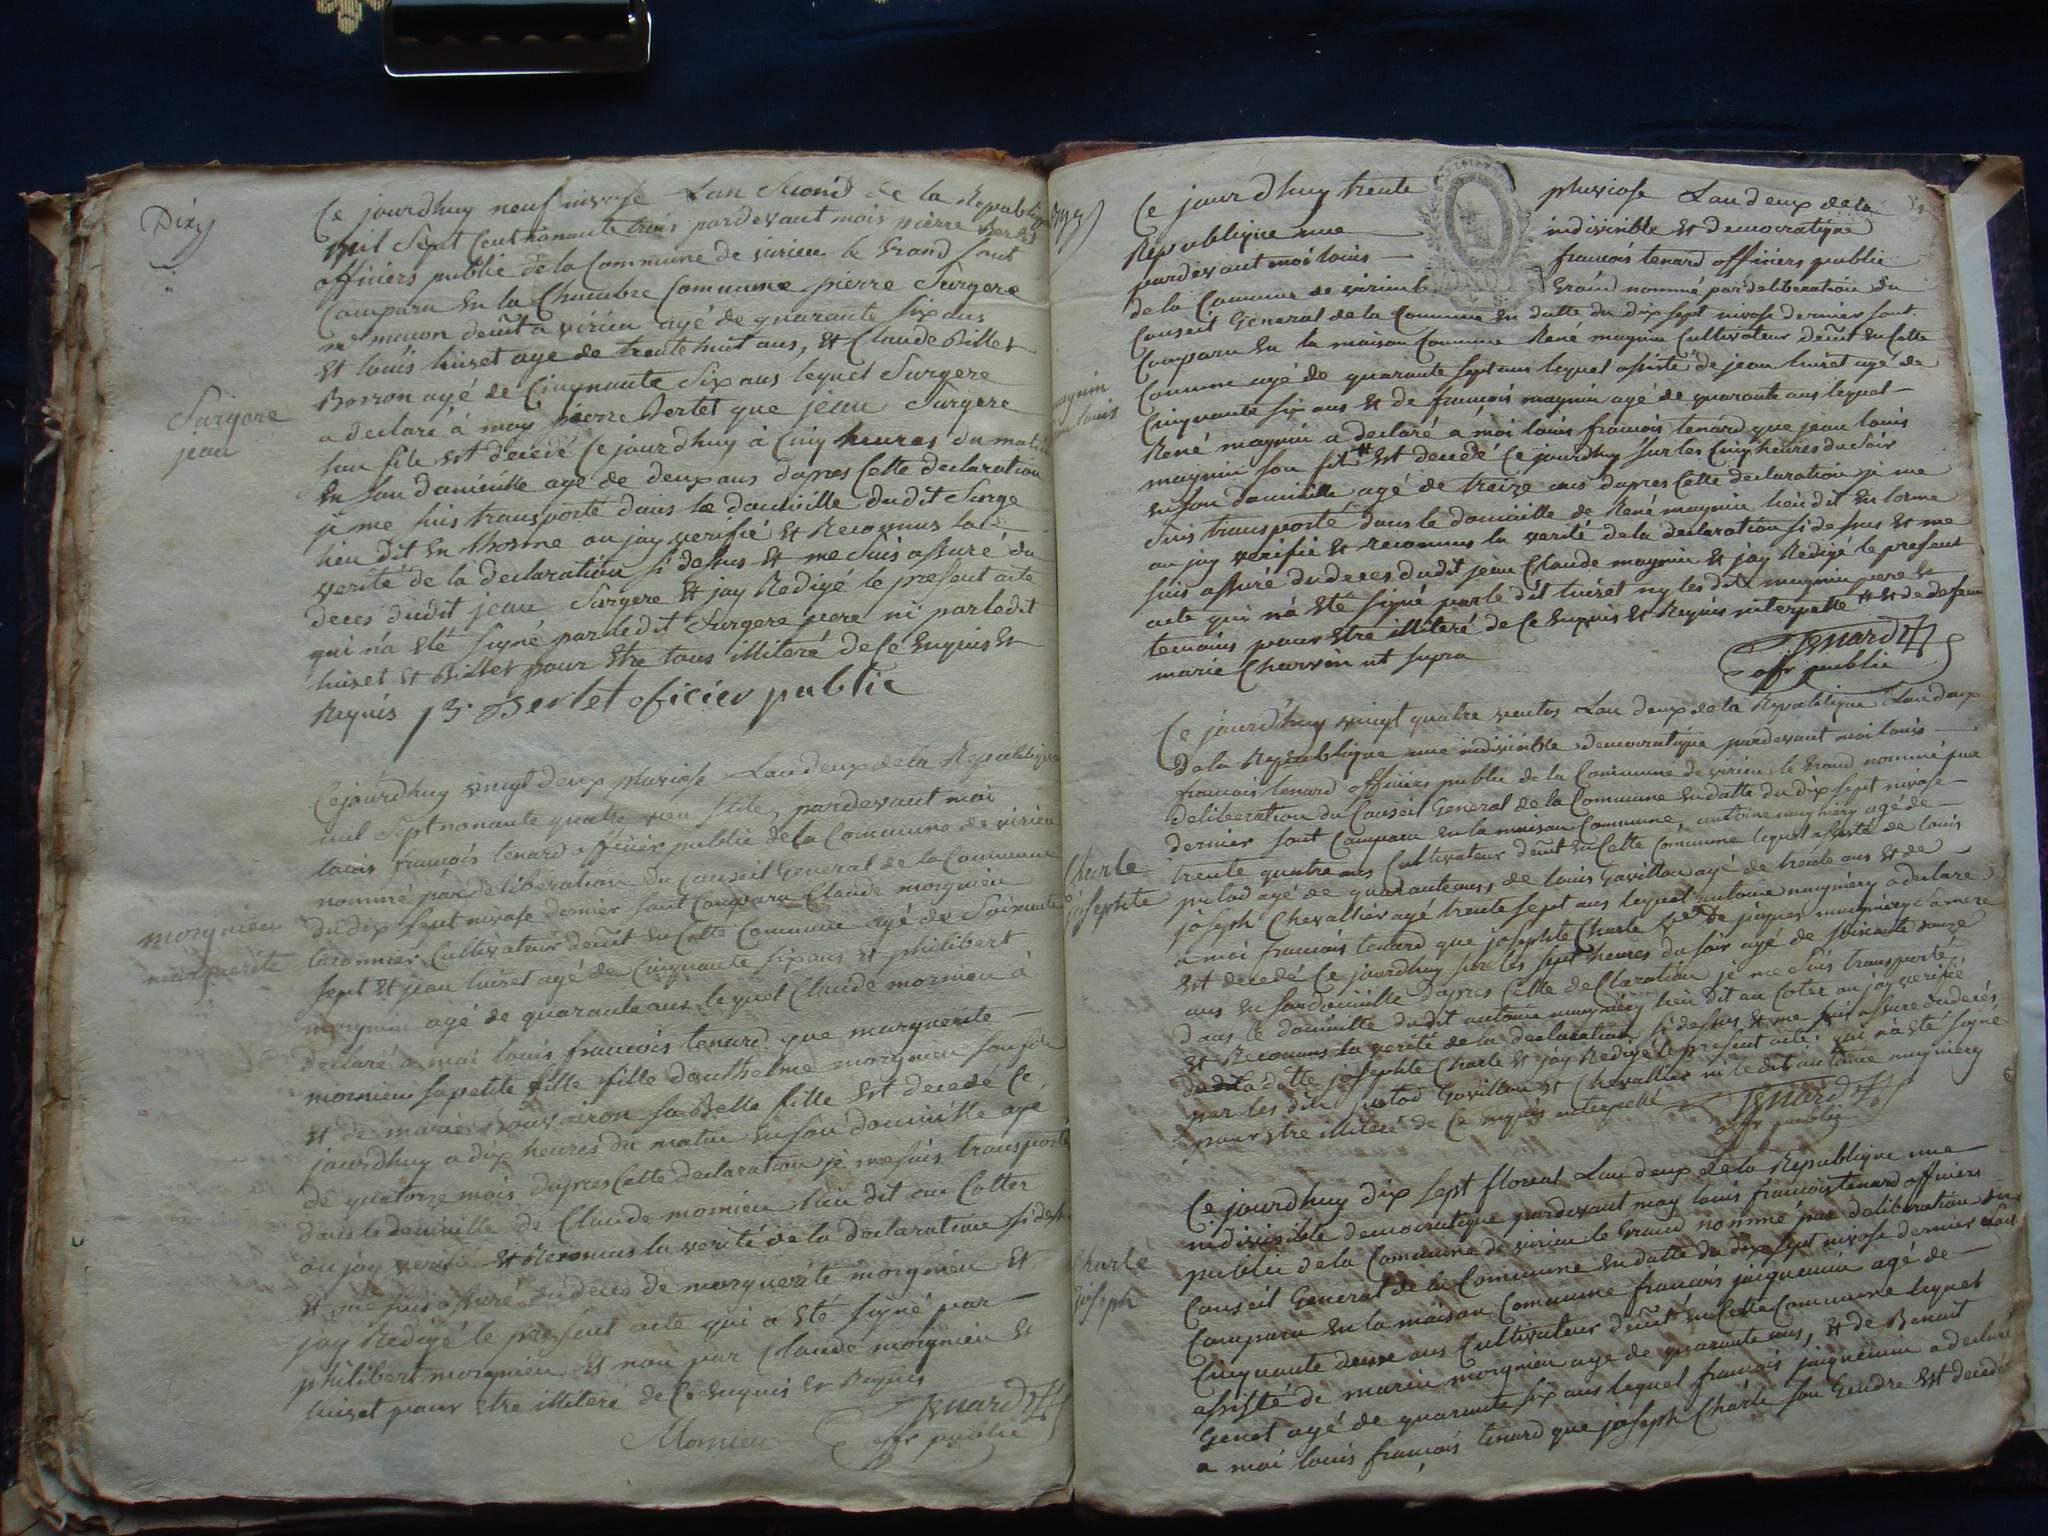 Dixy
Ce jourdhuy neuf nivose Lan second de la Republiq
mil sept cent nonante trois pardevant mois pierre Bertet
officiers public de la Commune de virieu le Grand sont
Comparu en la Chambre Commune pierre Surgere
me macon deut a virieu agé de quarante six ans
et louis huset age de trente huit ans, et Claude Billet
Borron agé de Cinquante six ans lequel Surgere
Surgere
jean
a declaré à moy pierre Bertet que jean Surgere
son fils est décedé Ce jourdhuy à Cinq heures du matin
en son domicille agé de deux ans dapres Cette declaration
je me suis transporté dans le domicille dudit Surge
lieu dit en lhorme ou jay verifié et Reconnus la
verité de la declaration si dessus et me suis assuré du
deces dudit jean Surgere et jay Redigé le present acte
qui na eté signé par ledit Surgere pere ni par ledit
huset et Billet pour etre tous illiteré de Ce Enquis et
Requis P. Bertet oficier public
Cejourdhuy vingt deux pluviose Lan deux de la Republique
mil sept nonante quatre vieu stile, pardevant moi
louis françois tenard officier public de la Commune de virieu
nommé par deliberation du Conseil General de la Commune
du dix sept nivose dernier sont Comparu Claude morgnieu
morgnieu
marguerite
Cultivateur deut en Cette Commune agé de Soixante
sept et jean huset agé de Cinquante six ans et philibert
morgnieu agé de quarante ans lequel Claude mornieu à
declaré a moi louis francois tenard que marguerite
mornieu sa petite fille fille danthelme morgnieu son fils
et de marie Bouvairon sa Belle fille est decedé Ce
jourdhuy a dix heures du matin en son domicille agé
de quatorze mois dapres Cette declaration je me suis transporté
dans le domicille de Claude mornieu lieu dit au Cotter
ou jay verifié et Reconnus la verité de la declaration si dessus
et me suis assuré du deces de marguerite morgnieu et
jay Redigé le present acte qui a eté signé par
philibert morgnieu et non par Claude morgnieu et
huset pour etre illiteré de Ce Enquis et Requis
Tenard
Mornieu offr public
Ce jourdhuy trente pluviose Lan deux de la
Republique une indivisible et democratique
pardevant moi louis francois tenard officiers public
de la Commune de virieu le Grand nommé par deliberation du
Conseil General de la Commune en datte du dix sept nivose dernier sont
Comparu en la maison Commune René magnin Cultivateur deut en Cette
Comune agé de quarante sept ans lequel assisté de jean huset agé de
magnin
jean louis
Cinquante six ans et de francois magnin agé de quarante ans lequel
René magnin a declaré a moi louis francois tenard que jean louis
magnin son fils est decedé Ce jourdhuy sur les Cinq heures du soir
en son domicille agé de treize ans dapres Cette declaration je me
suis transporté dans le domicille de René magnin lieu dit en lorme
ou jay verifié et reconnus la verité de la declaration si dessus et me
suis assuré du deces dudit jean Claude magnin et jay Redigé le present
acte qui na eté signé par le dit huset ny les dits magnin pere et
temoins pour etre illiteré de Ce Enquis et Requis interpellé et de defeue
marie Charvin ut supra
Tenard
offr public
Ce jourdhuy vingt quatre ventos Lan deux de la Republique Lan deux
de la Republique une indivisible democratique pardevant moi louis
francois tenard officiers public de la Commune de virieu le Grand nommé par
deliberation du Conseil General de la Commune en datte du dix sept nivose
dernier sont Comparu en la maison Commune, antoine mugniery agé de
Charle
josephte
trente quatre ans Cultivateur deut en Cette Commune lequel assisté de louis
agé de quarante ans, de louis Gavillon agé de trente ans et de
joseph Chevallier agé trente sept ans lequel antoine mugniery a declaré
a moi francois tenard que josephte Charle ve de jaques mugniery sa mere
est decedé Ce jourdhuy sur les sept heures du soir agé de soixante douze
ans en son domicille dapres Cette declaration je me suis transporté
dans le domicille dudit antoine mugniery lieu dit au Coter ou jay verifié
et Reconnus la verité de la declaration si dessus et me suis assuré du decés
de ladite josephte Charle et jay Redigé le present acte qui na eté signé
par les dits Gavillon et Chevallier ni le dit antoine mugniery
pour etre illiteré de Ce enquis interpellé Tenard
offr public
Ce jourdhuy dix sept floreal Lan deux de la Republique une
indivisible democratique pardevant moy louis francois tenard officiers
public de la Commune de virieu le Grand nommé par deliberation du
Charle
joseph
Conseil General de la Commune en datte du dix sept nivose dernier sont
Comparu en la maison Commune francois juignenin agé de
Cinquante deux ans Cultivateur deut en Cette Commune lequel
assisté de marin morgnieu agé de quarante ans, et de Benoit
Genet agé de quarante six ans lequel francois juignenin a declaré
a moi louis françois tenard que joseph Charle son Gendre est decedé